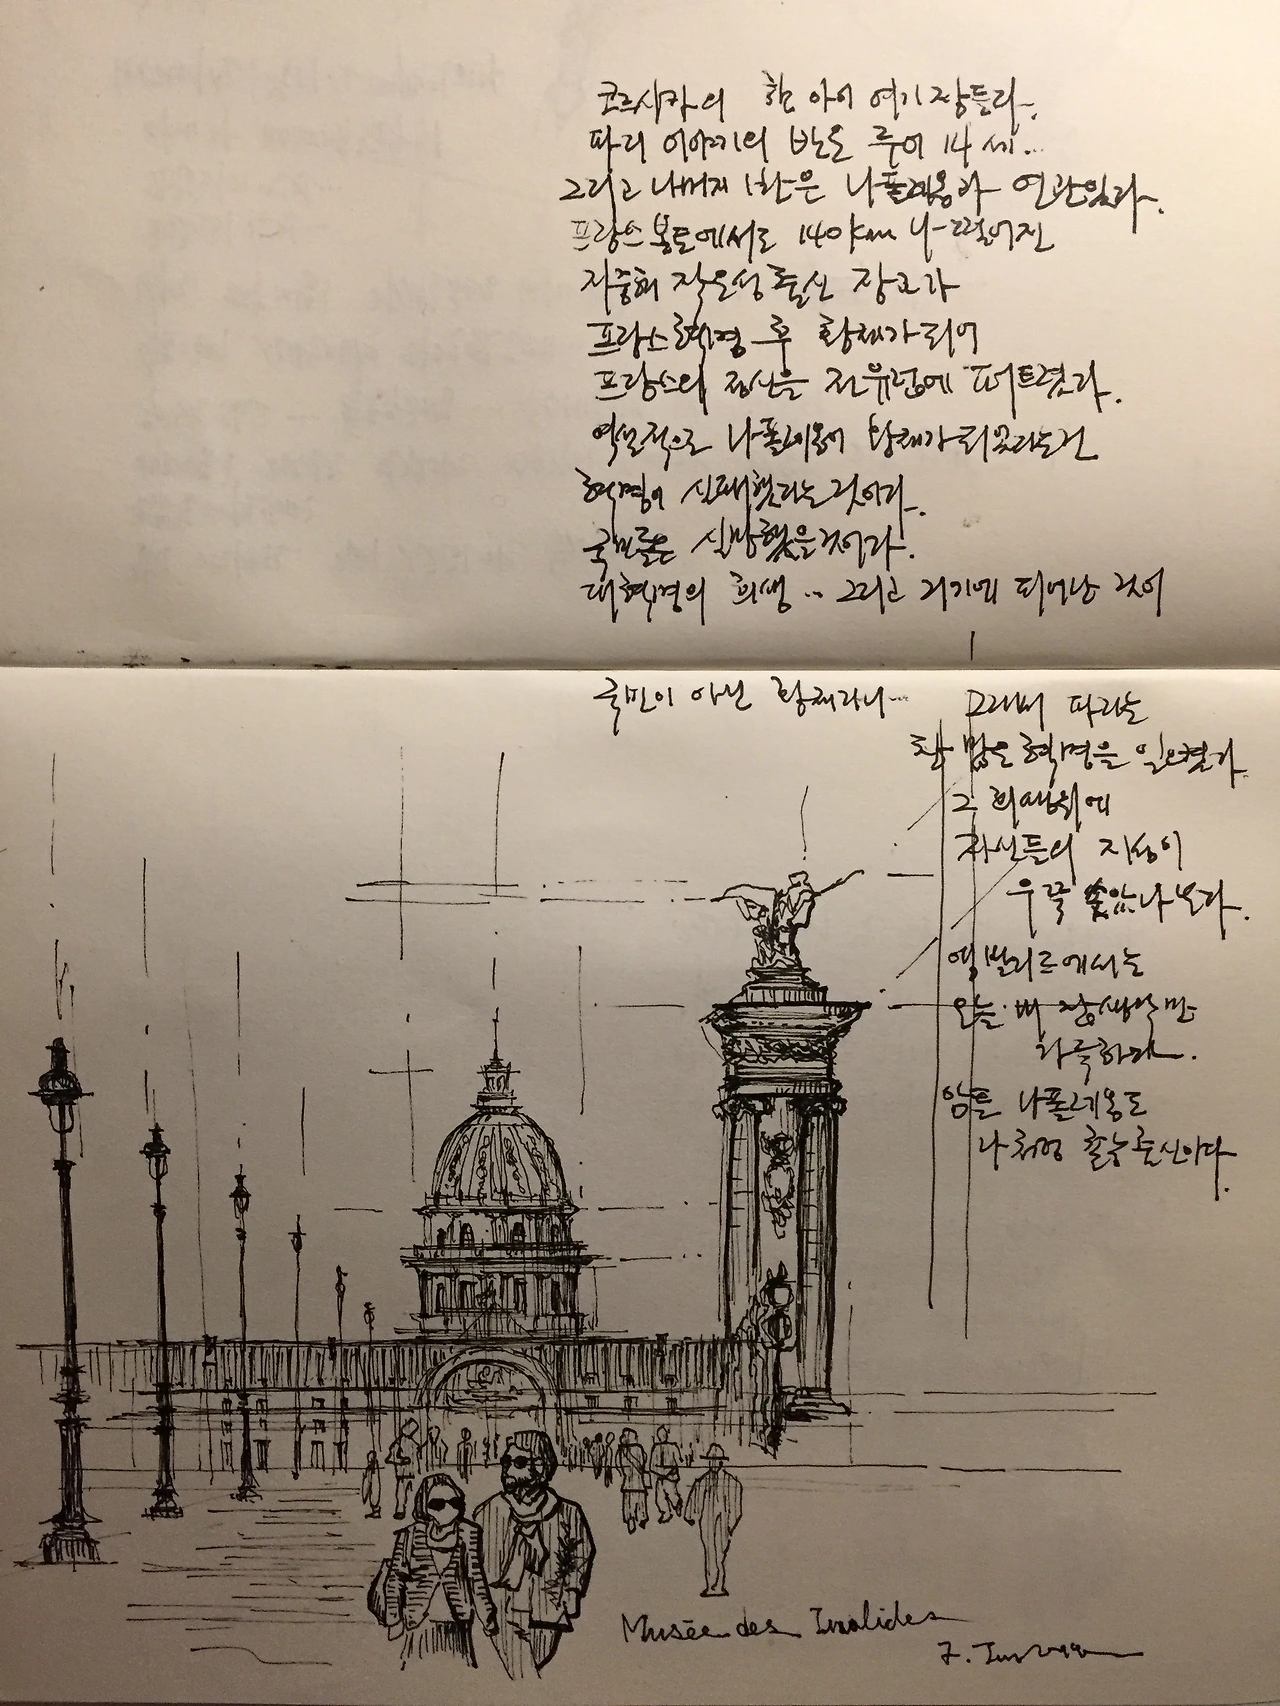 코르시카의 한 아이 여기 잠들다.
파리 이야기의 반은 루이 14세...
그리고 나머지 반은 나폴레옹과 연관있다.
프랑스 봉토에서도 140km나 떨어진
지중해 작은섬 출신 장교가
프랑스 혁명 후 황제가 되어
프랑스의 정신을 전유럽에 퍼트렸다.
역설적으로 나폴레옹이 황제가 되었다는건
혁명이 실패했다는 것이다.
국민들은 실망했을 것이다.
대혁명의 희생... 그리고 거기에 피어난 것이
국민이 아닌 황제라니...
그래서 파리는
참 많은 혁명을 일으켰다.
그 희생위에
자신들의 지성이
우뚝 솟았나 보다.
앵발리드에서는
오늘
가득하다.
암튼 나폴레옹도
나처럼 촌놈 출신이다.
Musée des Invalides